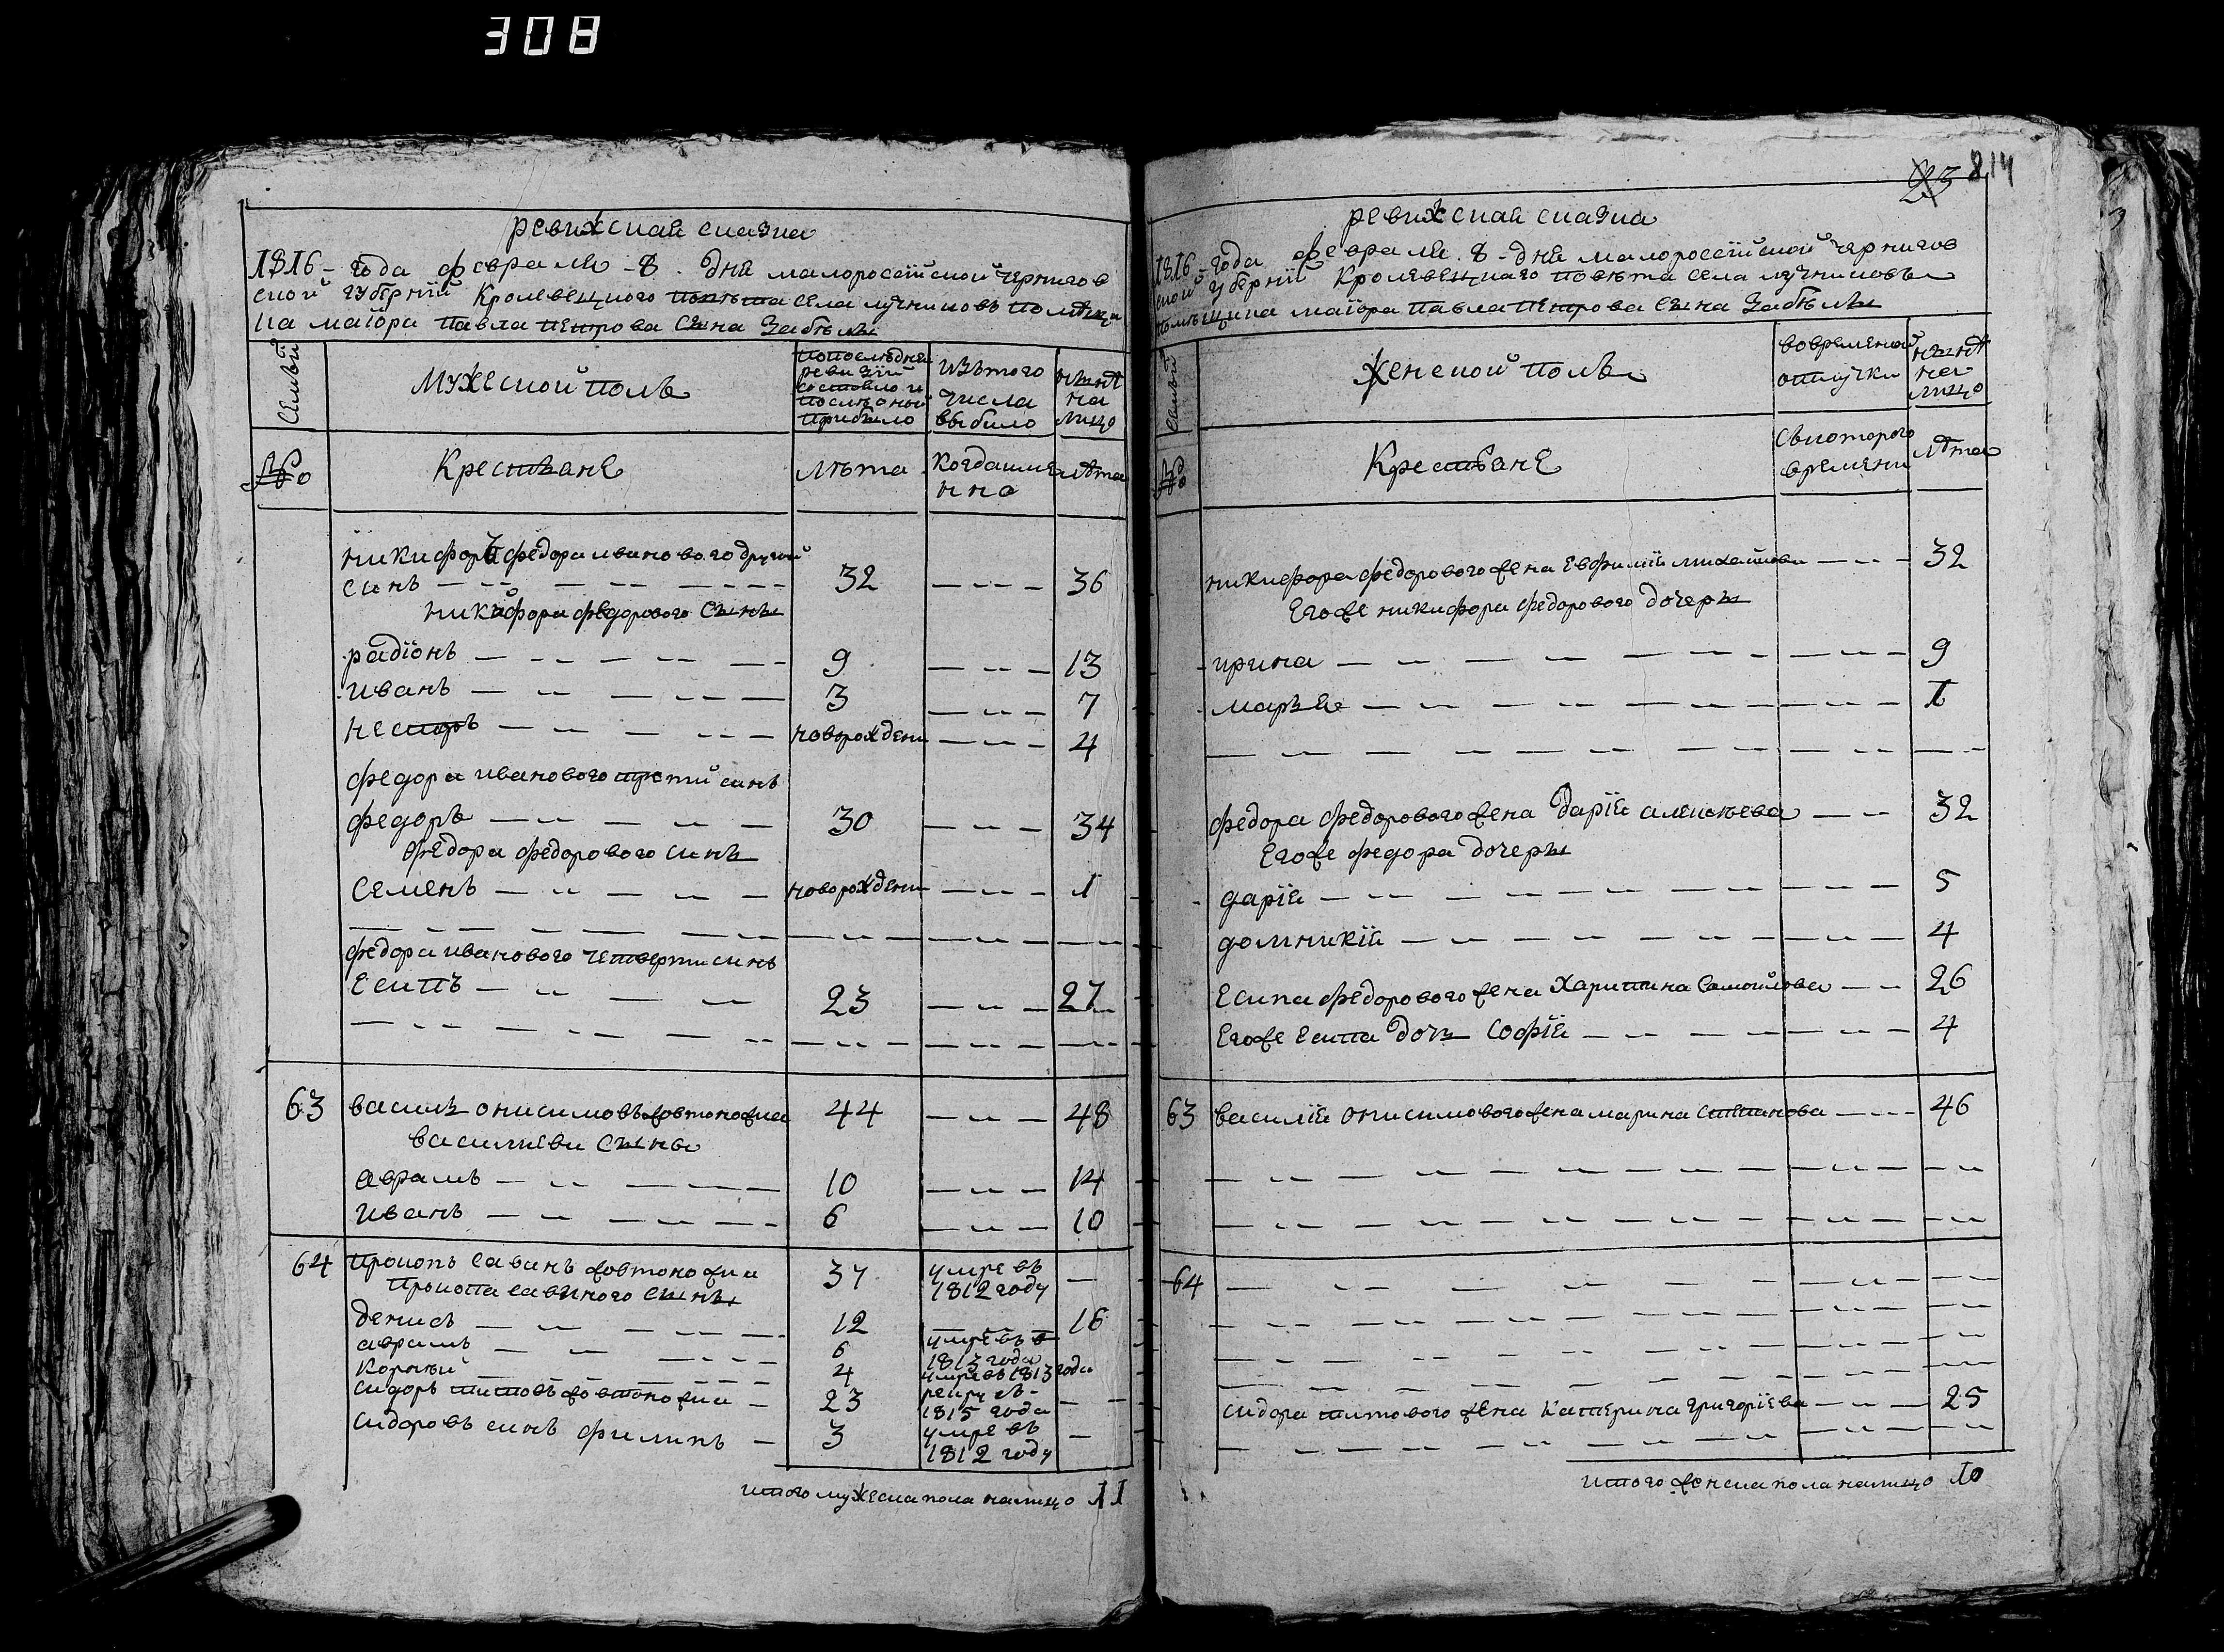 308
ревижская сказка
1816 - года февраля - 8 . дня малороссійской чернигов
ской губерній Кролевецкого повѣта села лучниковъ помѣщи
ка маіора павла петрова сына Забѣлы
Семьи
мужеской полъ
попослѣдней
ревизіи
состояло и
послѣ оной
прибыло
изътого
числа
выбило
нынѣ
на
лицо
№
Крестьяне
лѣта
когда име
нно
лѣта
никифоръ федора иванового другий
синъ — — — 32 — — — 36
никифора федорового сыны
радіонъ — — — 9 — — — 13
иванъ — — — 3 — — — 7
несторъ — — — новорожден — — — 4
федора иванового трети синъ
федоръ — — — 30 — — — 34
федора федорового синъ
семенъ — — — новорожден — — — 1
федора иванового четверти синъ
Есипъ — — — 23 — — — 27
63 василь онисимовъ жовтоножка 44 — — — 48
василиеви сыны
аврамъ — — — 10 — — — 14
иванъ — — — 6 — — — 10
64 прокопъ савинъ жовтоножка 37 умре въ 1812 году —
прокопа савиного сынъ
денисъ — — — 12 — — — 16
аврамъ — — — 6 умре въ 1813 года
Корнѣй — — — 4 умре въ 1813 года
сидоръ титовъ жовтоножка — 23 рекру въ 1815 года — —
сидоровъ синъ филипъ — 3 умре въ 1812 году —
итого мужеска пола налицо 11
23 814
ревижская сказка
1816 - года февраля . 8 - дня малороссійской чернигов
ской губерній Кролевецкаго повѣта села лучниковъ
помѣщика маіора павла петрова сына Забѣлы
Семьи
Женской полъ
вовременной
отлучки
нынѣ
на
лицо
№
Крестьяне
Съкоторого
времени
лѣта
никифора федорового жена Евфимія михайлова — — — 32
Егоже никифора федорового дочеры
ирина — — — 9
марья — — — 1
федора федорового жена Дарія алексѣева — — 32
Егоже федора дочеры
дарія — — — 5
домникія — — — 4
Есипа федорового жена Харитина самойлова — — 26
Егоже Есипа дочь Софія — — — 4
63 василія онисимового жена марина степанова — — — 46
64 — — —
сидора титового жена Катерина григоріева — — — 25
итого женска пола налицо 10